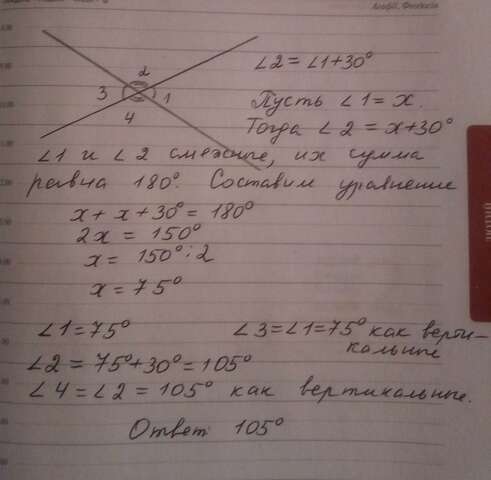 Агафії, Феоктіст
2
3
1
4
∠2 = ∠1+30°
Пусть ∠1 = x.
Тогда ∠2 = x+30°
∠1 и ∠2 смежные, их сумма
равна 180°. Составим уравнение
x + x + 30° = 180°
2x = 150°
x = 150° : 2
x = 75°
∠1 = 75°
∠3 = ∠1 = 75° как верти-
кальные
∠2 = 75° + 30° = 105°
∠4 = ∠2 = 105° как вертикальные.
Ответ 105°